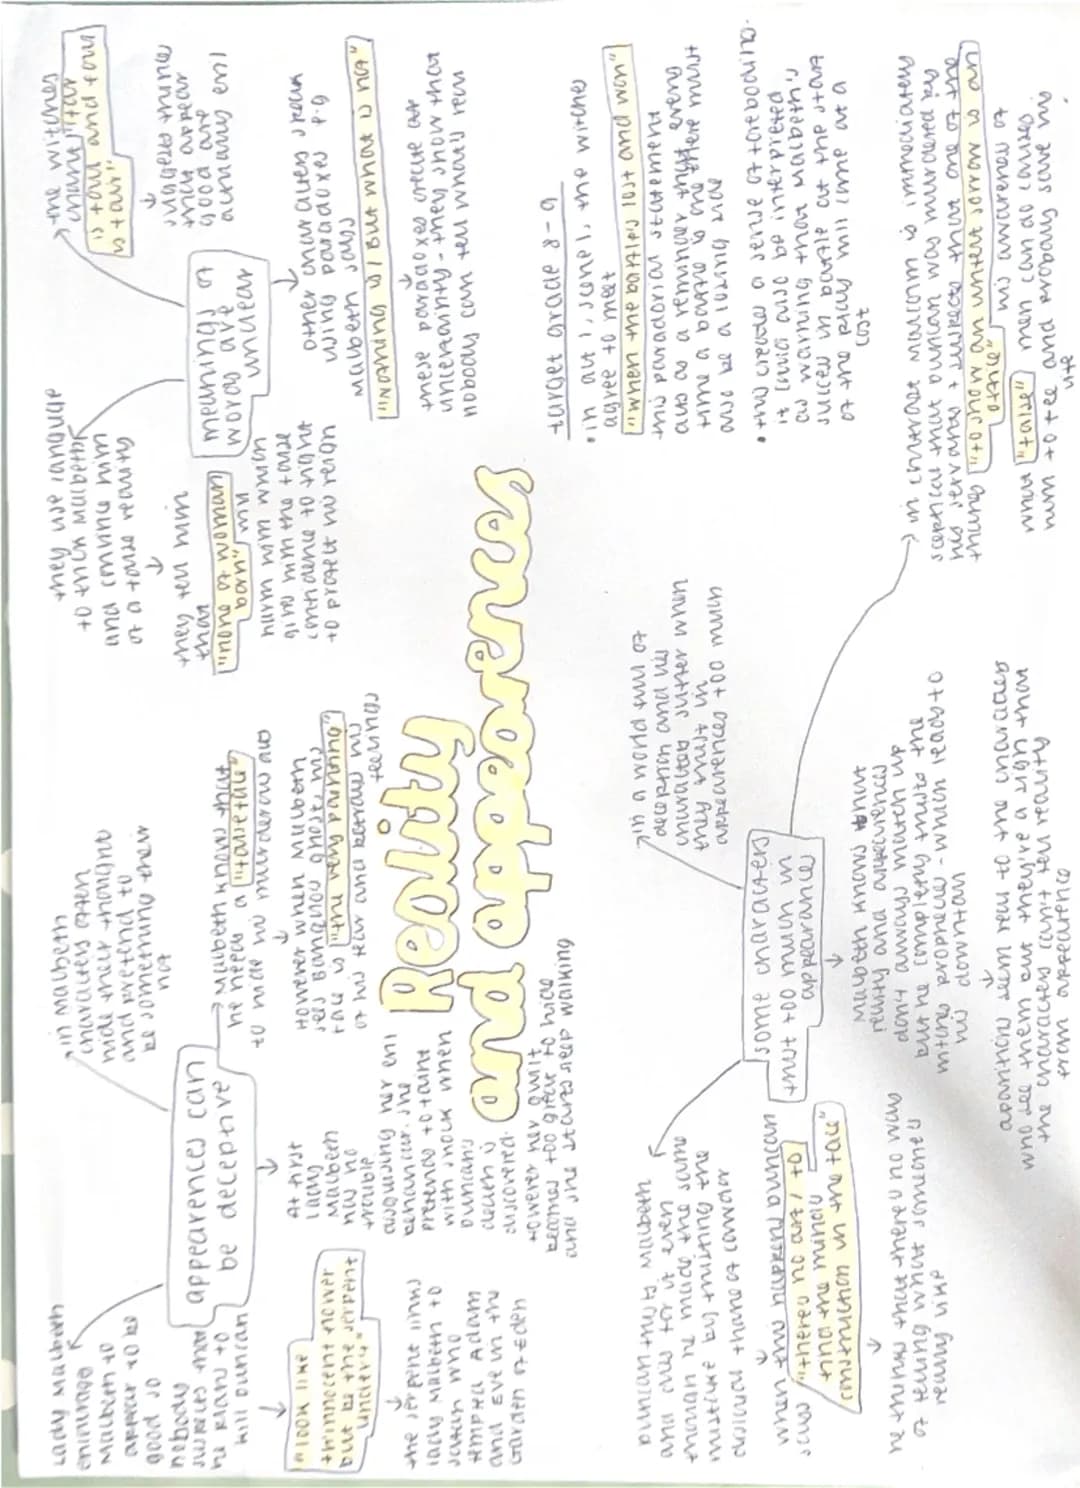 Reality
and appearences
appearences can
be deceptive
Lady Macbeth
encourages
Macbeth to
appear to be
good so
nobody
suspects that
he plans to
kill Duncan
"look like
th'innocent flower
but be the serpent
under't"
the serpent links
lady Macbeth to
satan who
tempted Adam
and Eve in the
Garden of Eden
in Macbeth
characters often
hide their thoughts
and pretend to
be something their
not
At first
lady
Macbeth
has no
trouble
disguising her evil
behaviour. she
pretends to faint
with shock when
Duncans
death is
discovered.
However her guilt
becomes too great to hide
and she starts sleep walking
Macbeth knows that
he needs a "false face"
to hide his murderous acts
However when Macbeth
sees Banquo's ghost his
face is "the very painting"
of his fear and betrays his
feelings
meanings of
words are
unclear
they use language
to trick Macbeth
and convince him
of a false reality
they tell him
that
"none of woman
born" will
harm him which
gives him the false
confidence to fight
to protect his reign
the witches
chant "fair
is foul and foul
is fair"
suggests things
that appear
good are
actually evil
other characters speak
using paradoxes e.g
Macbeth says
"Nothing is / But what is not"
these paradoxes create an
uncertainty - they show that
nobody can tell what's real
target grade 8-9
• in act 1, scene 1, the witches
agree to meet
"when the battle's lost and won"
this paradoxical statement
acts as a reminder that every
time a battle is one there must
also be a losing side
• this creates a sense of foreboding.
it could also be interpreted
as warning that Macbeth's
success in battle at the start
of the play will come at a
cost
some characters
trust too much in
appearance
Duncan trusts Macbeth
and dies for it even
though he made the same
mistake by trusting the
disloyal thane of cawdor
when this happens Duncan
says "there's no art / to
find the mind's
construction in the face"
he thinks that there's no way
of telling what someone's
really like
in a world full of
deception and lies
characters suffer when
they trust in
appearences too much
Macbeth knows that
reality and appearences
don't always match up
but he completely trusts the
witches prophecies - which leads to
his downfall
apparitions seem real to the characters
who see them but they're a sign that
the characters can't tell reality
from appearence
in contrast Malcolm is immediately
sceptical that Duncan was murdered by
his servants + suspects that one of the
thanes "to show an unfelt sorrow is an
office" his awareness of
what "false" men can do causes
him to flee and probably save his
life